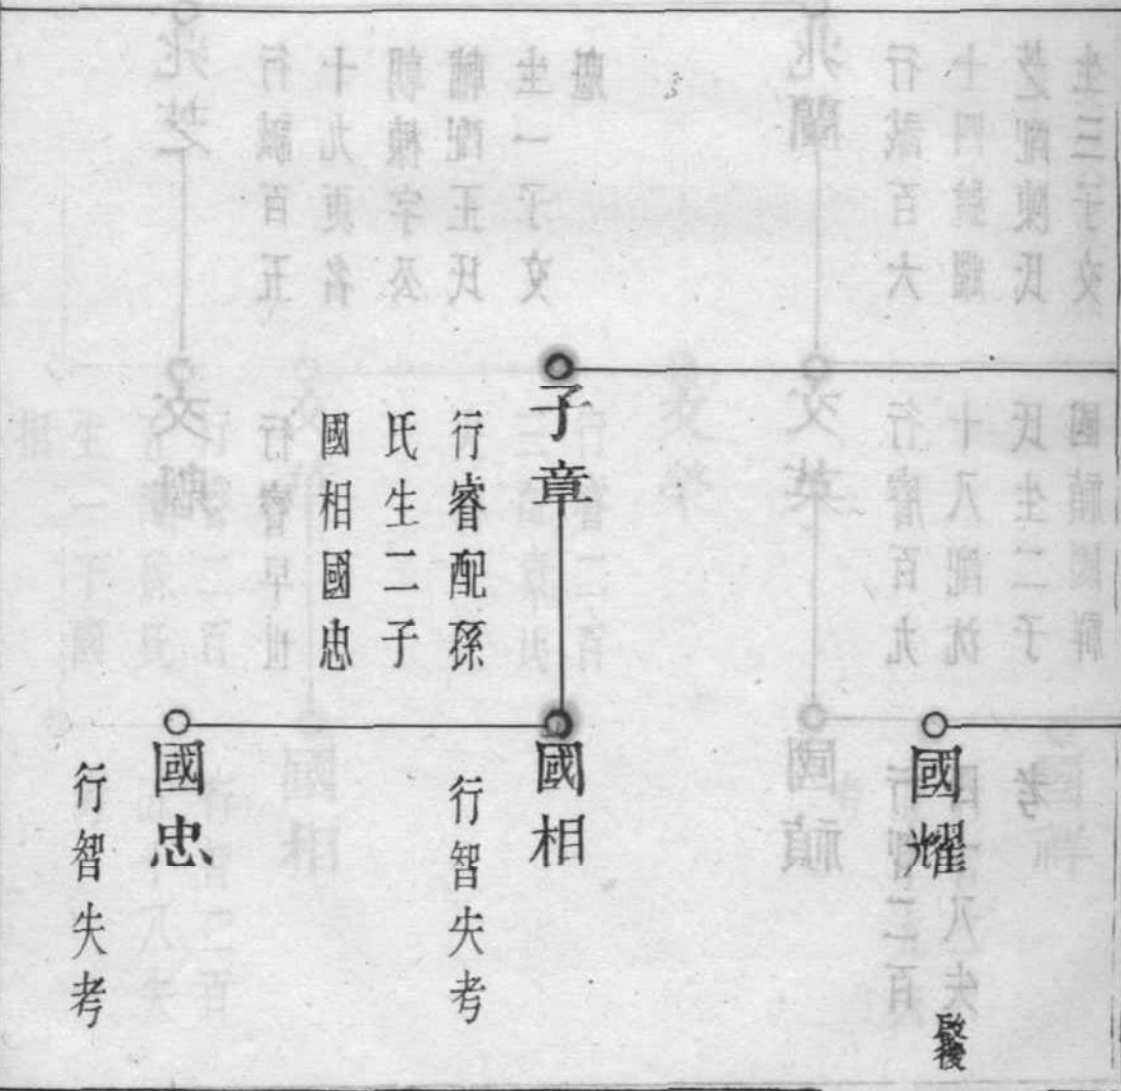 子章
行睿配孫
氏生二子
國相國忠
國耀
啟後
國相
行智失考
國忠
行智失考